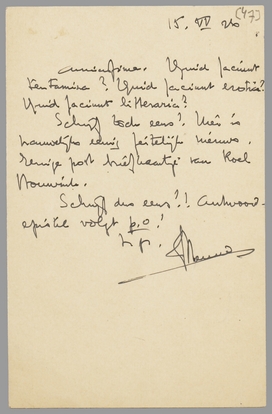 15. VI 26 [47]
Amicissime. Quid faciunt
tentamina? Quid faciunt erotica?
Quid faciunt litteraria?
Schrijf toch eens! Hier is
nauwelijks eenig feitelijk nieuws.
Eenige post briefkaartje van Roel
Houwink.
Schrijf dus eens!! Antwoord-
epistel volgt p.o!
t.t.